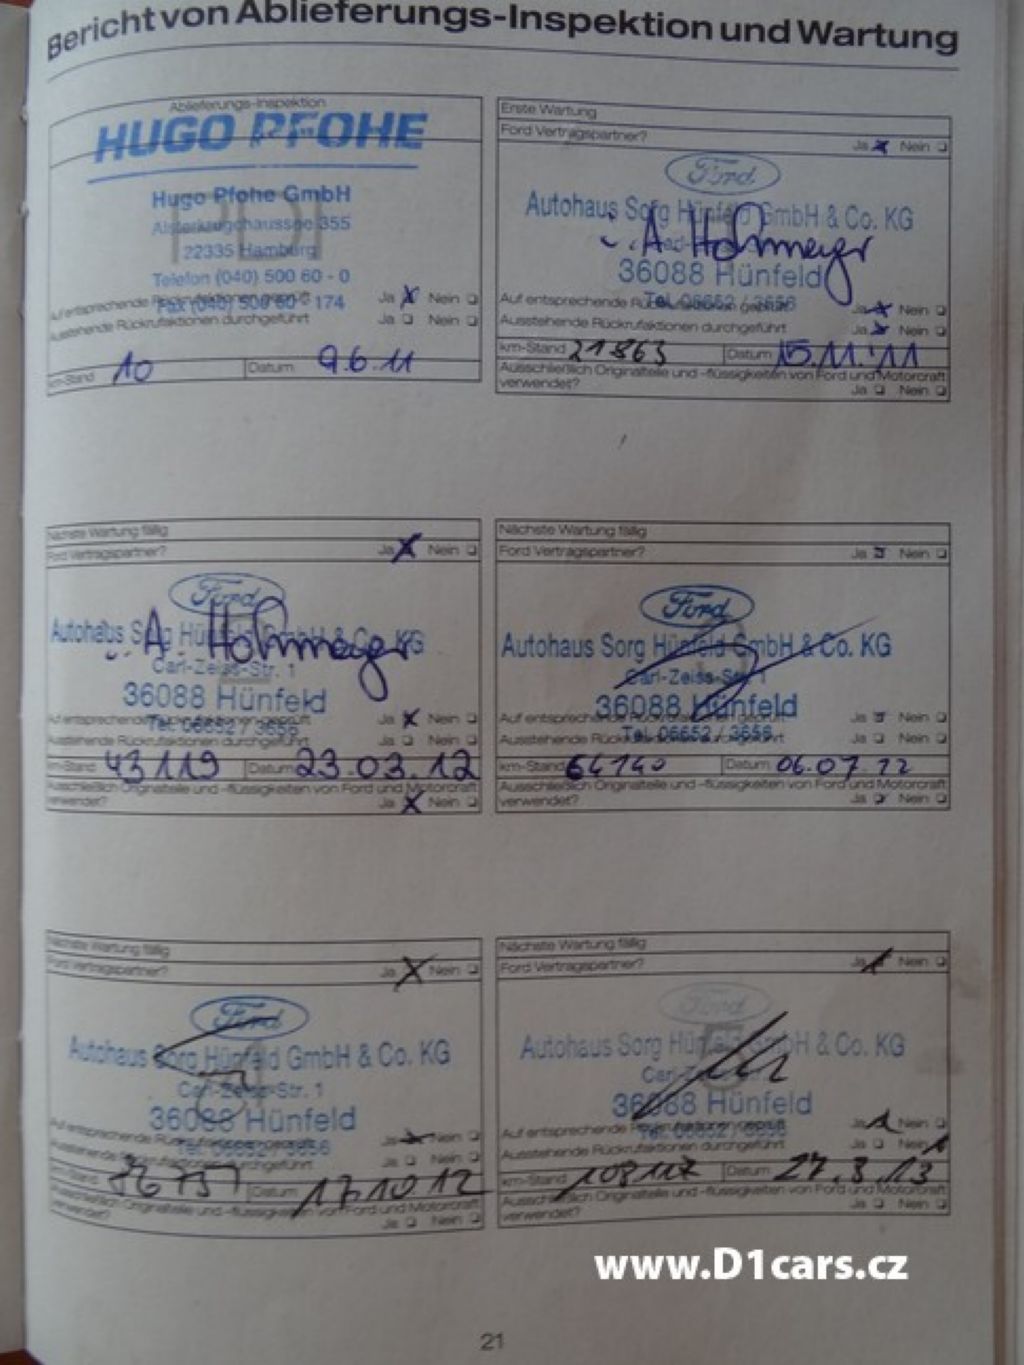 Bericht von Ablieferungs-Inspektion und Wartung
Ablieferungs-Inspektion
HUGO PFOHE
Hugo Pfohe GmbH
Alsterkrugchaussee 355
22335 Hamburg
Telefon (040) 500 60 - 0
Fax (040) 500 60 - 174
Auf entsprechende Rückrufaktionen geprüft Ja Nein
Ausstehende Rückrufaktionen durchgeführt Ja Nein
km-Stand 10 Datum 9.6.11
Erste Wartung
Ford Vertragspartner? Ja Nein
Ford
Autohaus Sorg Hünfeld GmbH & Co. KG
A. Hohmeyer
36088 Hünfeld
Tel. 06652 / 3656
Auf entsprechende Rückrufaktionen geprüft Ja Nein
Ausstehende Rückrufaktionen durchgeführt Ja Nein
km-Stand 21863 Datum 15.11.'11
Ausschließlich Originalteile und -flüssigkeiten von Ford und Motorcraft
verwendet? Ja Nein
Nächste Wartung fällig
Ford Vertragspartner? Ja Nein
Ford
Autohaus Sorg Hünfeld GmbH & Co. KG
A. Hohmeyer
Carl-Zeiss-Str. 1
36088 Hünfeld
Tel. 06652 / 3656
Auf entsprechende Rückrufaktionen geprüft Ja Nein
Ausstehende Rückrufaktionen durchgeführt Ja Nein
km-Stand 43119 Datum 23.03.12
Ausschließlich Originalteile und -flüssigkeiten von Ford und Motorcraft
verwendet? Ja Nein
Nächste Wartung fällig
Ford Vertragspartner? Ja Nein
Ford
Autohaus Sorg Hünfeld GmbH & Co. KG
Carl-Zeiss-Str. 1
36088 Hünfeld
Tel. 06652 / 3656
Auf entsprechende Rückrufaktionen geprüft Ja Nein
Ausstehende Rückrufaktionen durchgeführt Ja Nein
km-Stand 64140 Datum 06.07.12
Ausschließlich Originalteile und -flüssigkeiten von Ford und Motorcraft
verwendet? Ja Nein
Nächste Wartung fällig
Ford Vertragspartner? Ja Nein
Ford
Autohaus Sorg Hünfeld GmbH & Co. KG
Carl-Zeiss-Str. 1
36088 Hünfeld
Tel. 06652 / 3656
Auf entsprechende Rückrufaktionen geprüft Ja Nein
Ausstehende Rückrufaktionen durchgeführt Ja Nein
km-Stand Datum 17.10.12
Ausschließlich Originalteile und -flüssigkeiten von Ford und Motorcraft
verwendet? Ja Nein
Nächste Wartung fällig
Ford Vertragspartner? Ja Nein
Ford
Autohaus Sorg Hünfeld GmbH & Co. KG
Carl-Zeiss-Str. 1
36088 Hünfeld
Tel. 06652 / 3656
Auf entsprechende Rückrufaktionen geprüft Ja Nein
Ausstehende Rückrufaktionen durchgeführt Ja Nein
km-Stand 108117 Datum 27.3.13
Ausschließlich Originalteile und -flüssigkeiten von Ford und Motorcraft
verwendet? Ja Nein
www.D1cars.cz
21